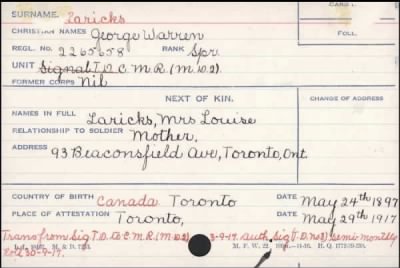 CARD I.
SURNAME. Laricks
CHRISTIAN NAMES George Warren
FOLL.
REGL. NO. 2265658 RANK Spr.
UNIT Signal T.D. C.M.R. (M.D.2)
FORMER CORPS Nil
NEXT OF KIN.
CHANGE OF ADDRESS
NAMES IN FULL Laricks, Mrs Louise
RELATIONSHIP TO SOLDIER Mother.
ADDRESS 93 Beaconsfield Ave, Toronto, Ont.
COUNTRY OF BIRTH Canada Toronto DATE May 24th 1897
PLACE OF ATTESTATION Toronto, DATE May 29th 1917
Trans from Sig T.D. to C.M.R. (M.D.2) 3-9-17. Auth. Sig T.D. semi-monthly
30-9-17.
M. F. W. 22.